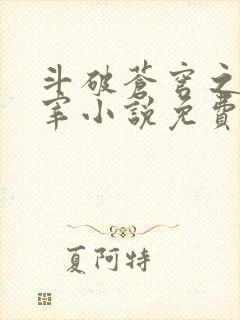 斗破蒼穹之
宰小說免費
夏阿特